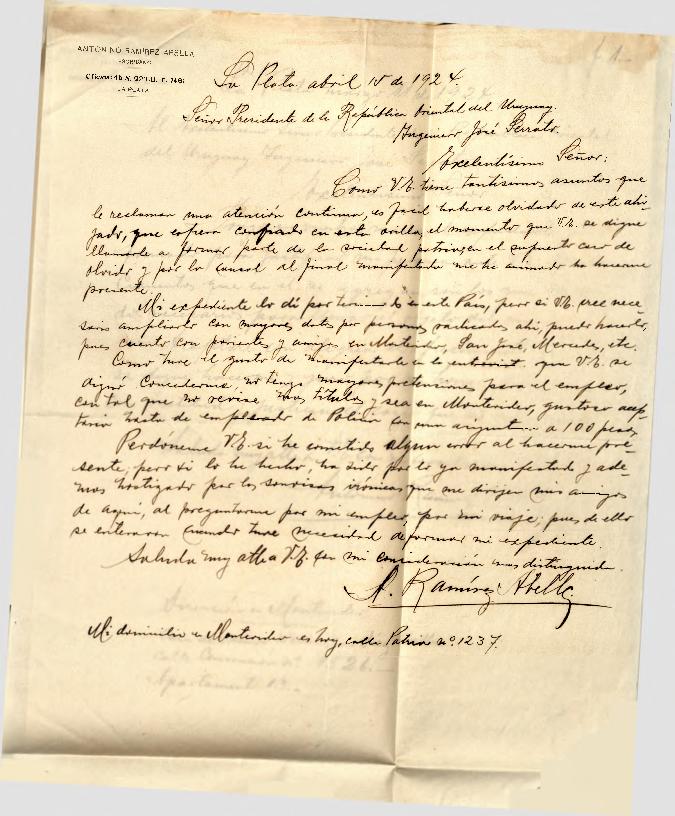 ANTONINO RAMÍREZ ABELLA
ESCRIBANO
LA PLATA
La Plata abril 15 de 1924
Señor Presidente de la República Oriental del Uruguay.
Ingeniero José Serrato.
Excelentísimo Señor:
Como V.E. tiene tantísimos asuntos que
le reclaman una atención continua, es facil haberse olvidado de este ahi-
jado, que espera confiado en esta orilla, el momento que V.E. se digne
llamarle a formar parte de la sociedad en el supuesto caso de
olvido y por la causal al final manifestada me he animado ha hacerme
presente.
Mi expediente lo dí por en este País, pero si V.E. cree nece-
sario ampliarlo con mayores datos por personas radicadas ahi, puedo hacerlo,
pues cuento con parientes y amigos en Montevideo, San José, Mercedes, etc.
Como tuve el gusto de manifestarle en la que V.E. se
dignó concederme, no tengo mayores pretensiones para el empleo,
con tal que no revise mis títulos y sea en Montevideo, gustoso acep-
taria hasta de empleado de Policia con una a 100 pesos.
Perdoneme V.E. si he cometido algun error al hacerme pre-
sente, pero si lo he hecho, ha sido por lo ya manifestado y ade-
mas hostigado por las sonrisas irónicas que me dirigen mis amigos
de aqui, al preguntarme por mi empleo, por mi viaje; pues de ello
se enteraron cuando tuve necesidad de formar mi expediente.
Saluda muy atte a V.E. con mi consideración mas distinguida.
A. Ramírez Abella
Mi domicilio en Montevideo es hoy, calle Patria nº 1237.